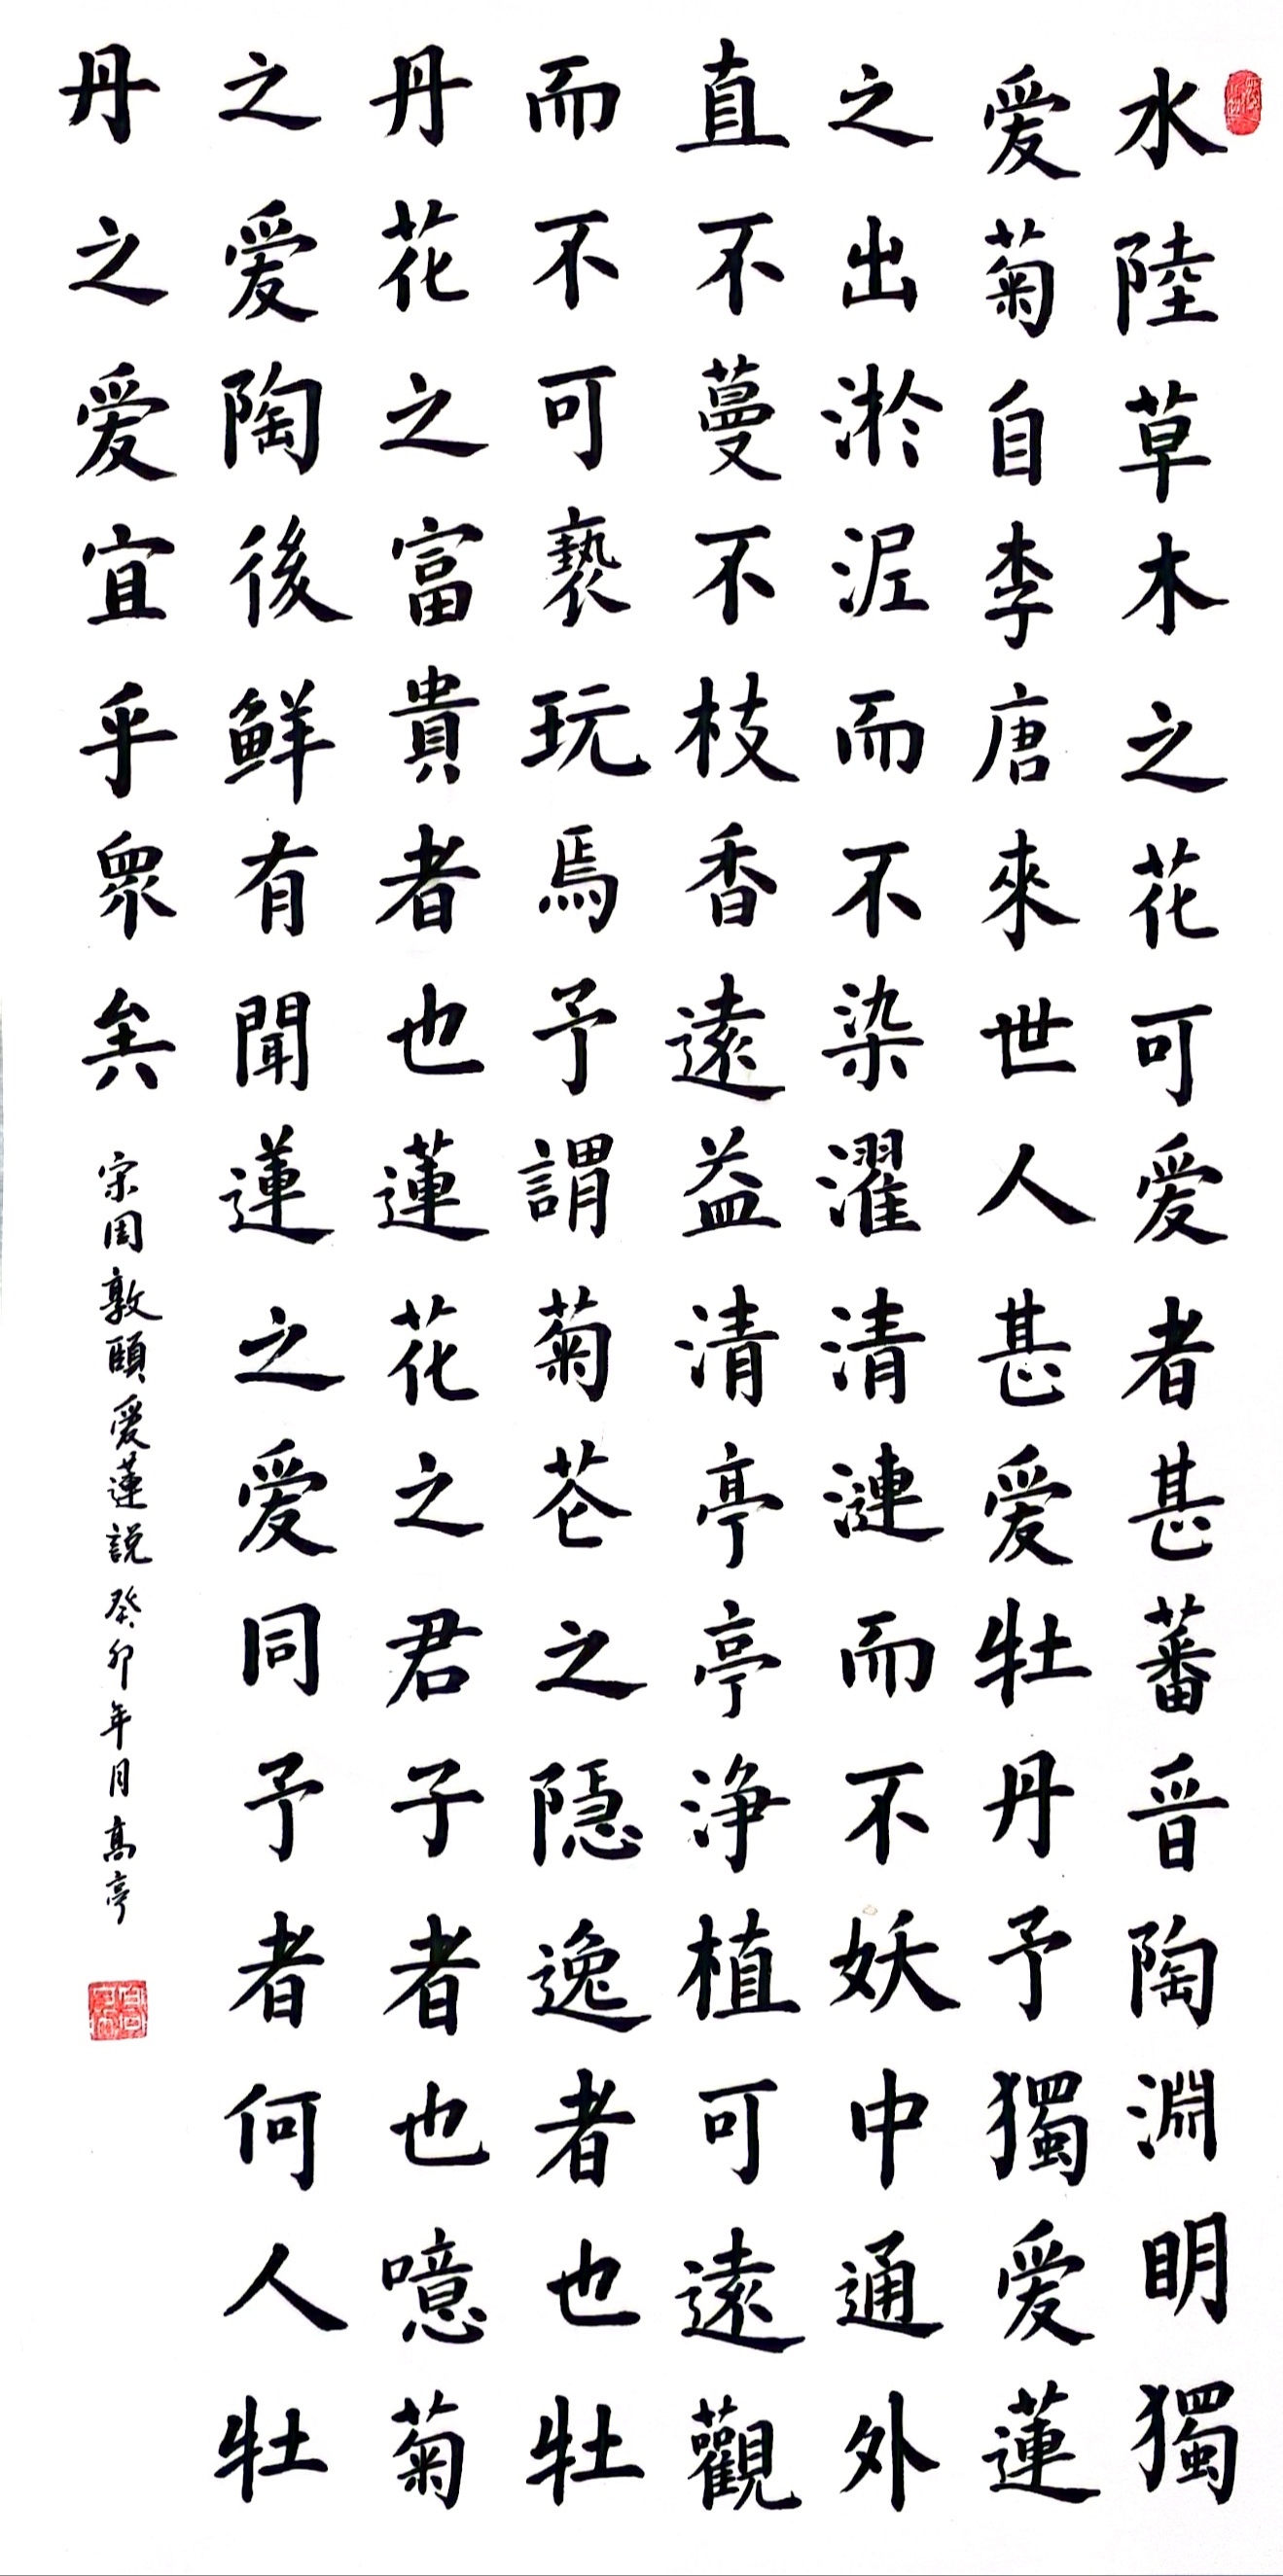 水陸草木之花可爱者甚蕃晋陶淵明獨
爱菊自李唐來世人甚爱牡丹予獨爱蓮
之出淤泥而不染濯清漣而不妖中通外
直不蔓不枝香遠益清亭亭浄植可遠觀
而不可褻玩焉予謂菊花之隠逸者也牡
丹花之富貴者也蓮花之君子者也噫菊
之爱陶後鮮有聞蓮之爱同予者何人牡
丹之爱宜乎眾矣
宋周敦頤爱蓮説癸卯年月高亭